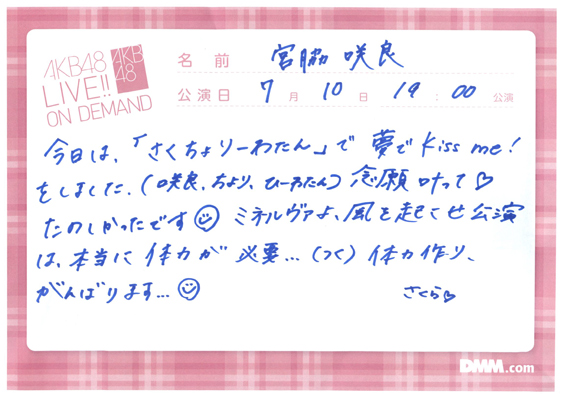 AKB48
LIVE!!
ON DEMAND
AKB
48
名前 宮脇 咲良
公演日 7月 10日 19:00 公演
今日は、「さくちょりーわたん」で 夢でKiss me!
をしました.(咲良、ちより、ひーわたん)念願叶って♡
たのしかったです☺ ミネルヴァよ、風を起こせ公演
は、本当に体力が必要…(つく)体力作り、
がんばります…☺
さくら♡
DMM.com